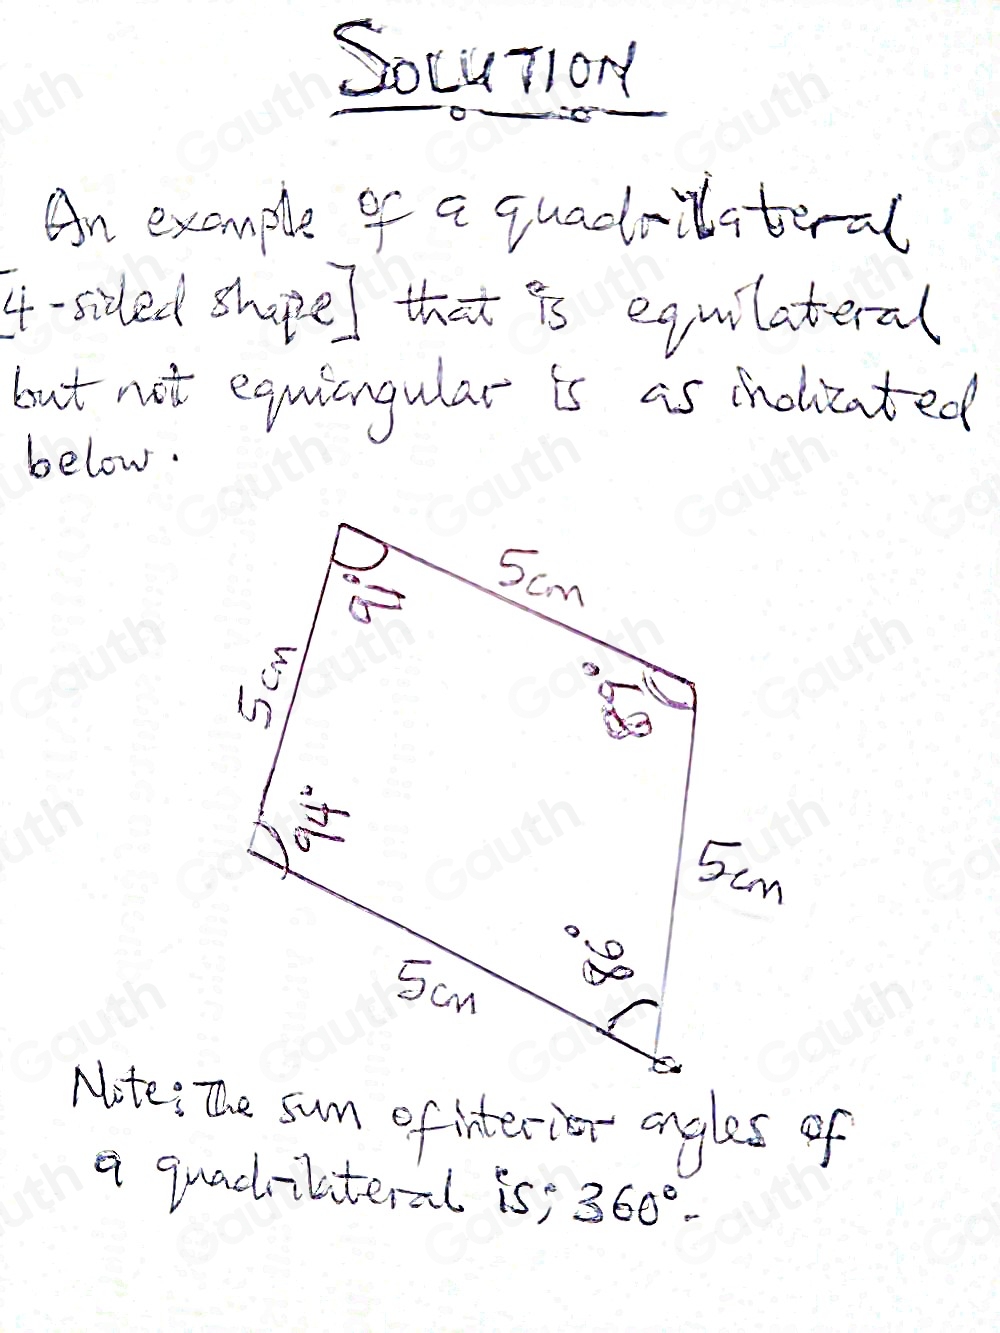 SOLUTION
An example of a quadrilateral
[4-sided shape] that is equilateral
but not equiangular is as indicated
below.
5cm
91°
5cm
89°
94°
5cm
86°
5cm
Note: The sum of interior angles of
a quadrilateral is; 360°.